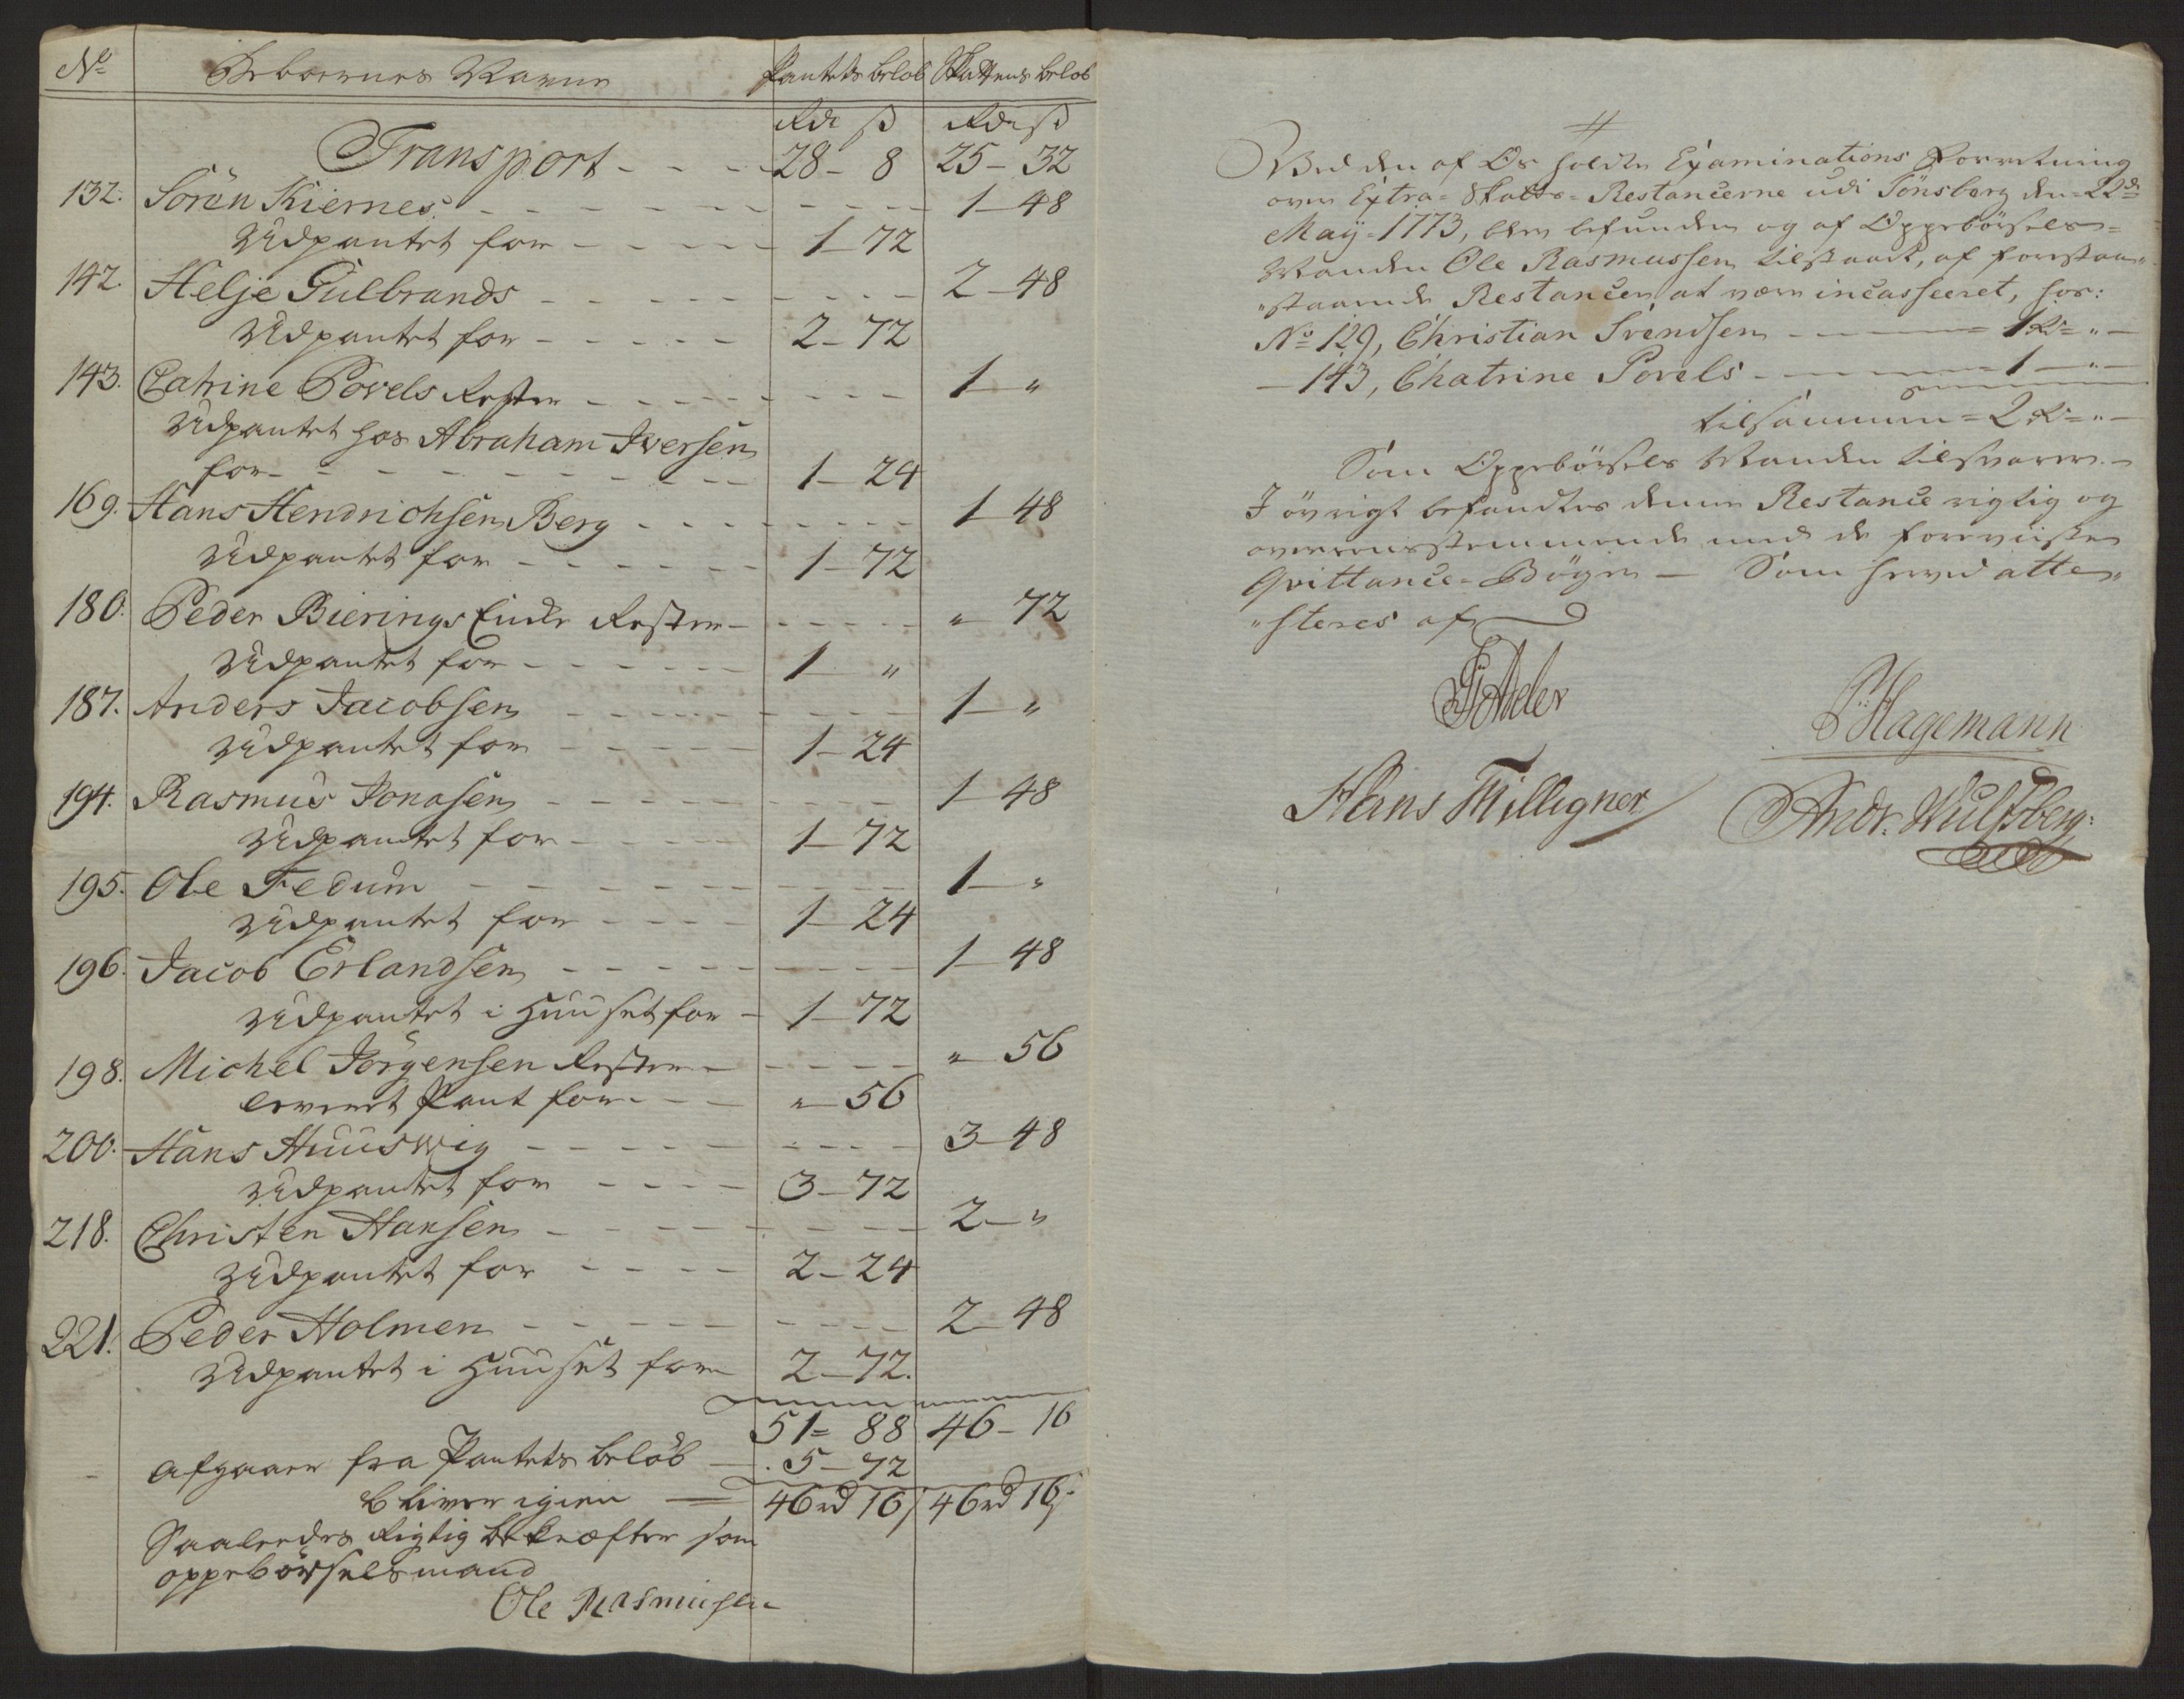 No Beboernes Navne Pantets beløb Skattens beløb
Rdr ß Rdr ß
Transport - - - 28 - 8 25 - 32
132. Sørən Kiernes - - - 1 - 48
Udpantet for - - - 1 - 72
142. Helje Gulbrands - - - 2 - 48
Udpantet for - - - 2 - 72
143. Catrine Povels Rester - - - 1 - "
Udpantet hos Abraham Iversen
for - - - 1 - 24
169. Hans Hendrichsen Berg - - - 1 - 48
Udpantet for - - - 1 - 72
180. Peder Bierings Encke Rester - - - " - 72
Udpantet for - - - 1 - "
187. Anders Jacobsen - - - 1 - "
Udpantet for - - - 1 - 24
194. Rasmus Jonasen - - - 1 - 48
Udpantet for - - - 1 - 72
195. Ole Fedum - - - 1 - "
Udpantet for - - - 1 - 24
196. Jacob Erlandsen - - - 1 - 48
Udpantet i Huuset for - 1 - 72
198. Michel Jørgensen Rester - - - " - 56
leveret Pant for - - - " - 56
200. Hans Huuswig - - - 3 - 48
Udpantet for - - - 3 - 72
218. Christen Hansen - - - 2 - "
Udpantet for - - - 2 - 24
221. Peder Holmen - - - 2 - 48
Udpantet i Huuset for 2 - 72.
51 = 88 46 - 16
Afgaaer fra Pantets beløb - 5 - 72
bliver igien - 46 rd 16 ß 46 rd 16 ß
Saaledes Rigtig bekræfter som
oppebørselsmand
Ole Rasmusen
Ved den af Os holdte Examinations Forretning
over Extra-Skatts-Restancerne udi Tönsberg den 22de
Maÿ 1773, blev befunden og af Oppebörsels=
Manden Ole Rasmussen tilstaaet, af forestaa„
„staaende Restancer, at være incasseeret, hos:
No 129, Christian Svendsen - - - 1 Rd " -
- 143, Chatrine Povels - - - 1 - " -
tilsammen = 2 Rd " -
Som Oppebörsels Manden tilsvarer. -
I övrigt befandtes denne Restance rigtig og
overeensstemmende med de foreviiste
Qvittance-Böger - Som herved atte„
„steres af
Adler
Hagemann
Hans Tilligner
Andr. Wulfsberg